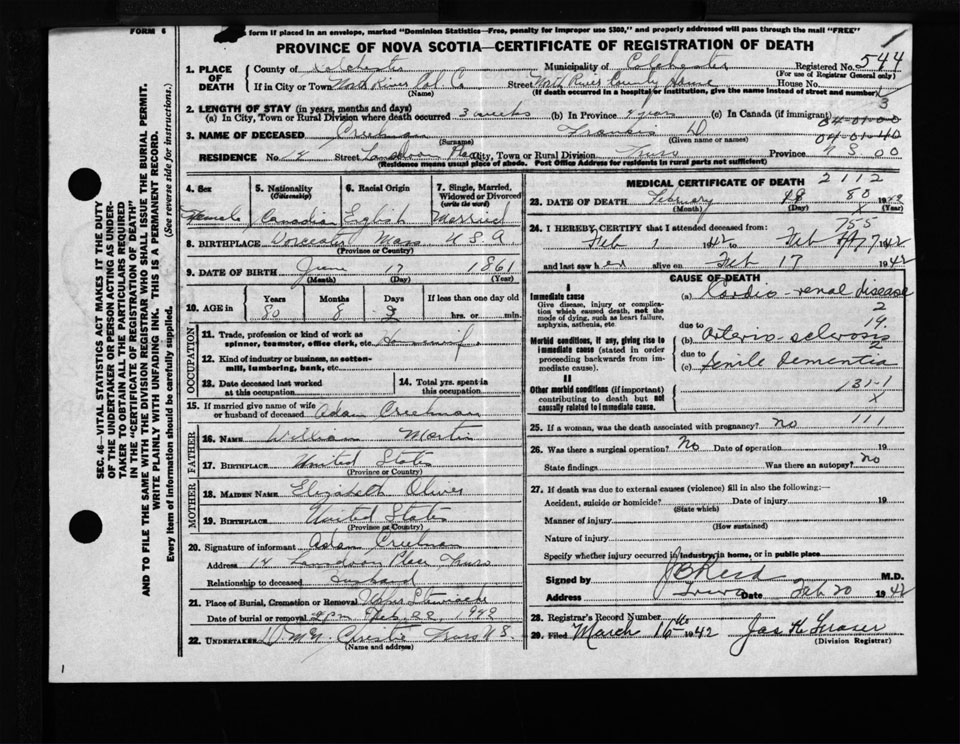 FORM 6
is form if placed in an envelope, marked "Dominion Statistics—Free, penalty for improper use $300," and properly addressed will pass through the mail "FREE"
PROVINCE OF NOVA SCOTIA—CERTIFICATE OF REGISTRATION OF DEATH
1. PLACE OF DEATH
County of Colchester Municipality of Colchester Registered No. 544
(For use of Registrar General only)
If in City or Town North River Col. Co Street North River County Home House No.
(Name) (If death occurred in a hospital or institution, give the name instead of street and number)
2. LENGTH OF STAY (in years, months and days)
(a) In City, Town or Rural Division where death occurred 3 weeks (b) In Province 9 years (c) In Canada (if immigrant)
3
04-01-00
04-01-40
3. NAME OF DECEASED Creelman Frances D
(Surname) (Given name or names)
RESIDENCE No. 14 Street Lansdown Place City, Town or Rural Division Truro Province N S 00
(Residence means usual place of abode. Post Office Address for residents in rural parts not sufficient)
4. Sex Female
5. Nationality (Citizenship) Canadian
6. Racial Origin English
7. Single, Married, Widowed or Divorced (write the word) Married
8. BIRTHPLACE Worcester Mass U S A
(Province or Country)
9. DATE OF BIRTH June 17 1861
(Month) (Day) (Year)
10. AGE Years 80 Months 8 Days If less than one day old hrs. or min.
OCCUPATION
11. Trade, profession or kind of work as spinner, teamster, office clerk, etc. Housewife
12. Kind of industry or business, as cotton-mill, lumbering, bank, etc.
13. Date deceased last worked at this occupation
14. Total yrs. spent in this occupation
15. If married give name of wife or husband of deceased Adam Creelman
FATHER
16. NAME William Martin
17. BIRTHPLACE United States
(Province or Country)
MOTHER
18. MAIDEN NAME Elizabeth Oliver
19. BIRTHPLACE United States
(Province or Country)
20. Signature of informant Adam Creelman
Address 14 Lansdown Place Truro
Relationship to deceased Husband
21. Place of Burial, Cremation or Removal Upper Stewiacke
Date of burial or removal 2 pm Feb. 22 1942
22. UNDERTAKER Truro N S.
(Name and address)
MEDICAL CERTIFICATE OF DEATH 2112
23. DATE OF DEATH February 80 1942
(Month) (Day) (Year)
X
755
24. I HEREBY CERTIFY that I attended deceased from:
Feb 1 1942 to Feb 17 1942
and last saw h er alive on Feb 17 1942
CAUSE OF DEATH
I
Immediate cause
Give disease, injury or complication which caused death, not the mode of dying, such as heart failure, asphyxia, asthenia, etc.
(a) Cardio-renal disease
2
19.
due to
Morbid conditions, if any, giving rise to immediate cause (stated in order proceeding backwards from immediate cause).
(b) Arterio-sclerosis
2
due to
(c) Senile Dementia
II
Other morbid conditions (if important) contributing to death but not causally related to immediate cause.
131-1
X
25. If a woman, was the death associated with pregnancy? no 111
26. Was there a surgical operation? No Date of operation 19
State findings Was there an autopsy? no
27. If death was due to external causes (violence) fill in also the following:—
Accident, suicide or homicide? Date of injury 19
(State which)
Manner of injury
(How sustained)
Nature of injury
Specify whether injury occurred in industry, in home, or in public place
Signed by J B Reid M.D.
Address Truro Date Feb 20 1942
28. Registrar's Record Number
29. Filed March 16th 1942 Jas H Fraser
(Division Registrar)
SEC. 46—VITAL STATISTICS ACT MAKES IT THE DUTY
OF THE UNDERTAKER OR PERSON ACTING AS UNDER-
TAKER TO OBTAIN ALL THE PARTICULARS REQUIRED
IN THE "CERTIFICATE OF REGISTRATION OF DEATH"
AND TO FILE THE SAME WITH THE DIVISION REGISTRAR WHO SHALL ISSUE THE BURIAL PERMIT.
WRITE PLAINLY WITH UNFADING INK. THIS IS A PERMANENT RECORD.
Every item of information should be carefully supplied. (See reverse side for instructions.)
1